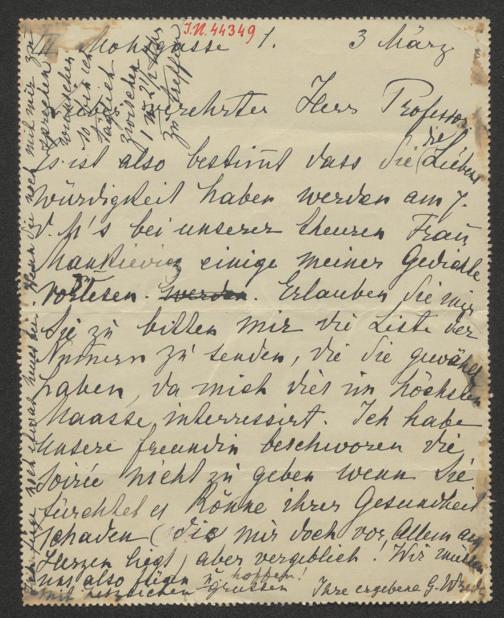 J.N. 44349
III Mohsgasse 1. 3 März
Lieber verehrter Herr Professor
Es ist also bestimt dass Sie die Liebens
würdigkeit haben werden am 7.
d. M's bei unserer theuren Frau
einige meiner Gedichte
Vorlesen. werden. Erlauben Sie mir
Sie zu bitten mir die Liste der
Numern zu senden, die Sie gewählt
haben, da mich dies im höchsten
Maasse interressirt. Ich habe
unsere freundin beschworen die
Soirée nicht zu geben wenn Sie
fürchtet es könne ihrer Gesundheit
schaden (die mir doch vor Allem am
Herzen liegt) aber vergeblich! Wir müssen
uns also fügen u. hoffen!
mit herzlichen grüssen Ihre ergebene G.
Ich füge noch etwas neues bei. Wenn Sie noch mit mir zu
sprechen
wünschen
so bin ich
täglich
zwischen
1 und 2½ Uhr
zu treffen